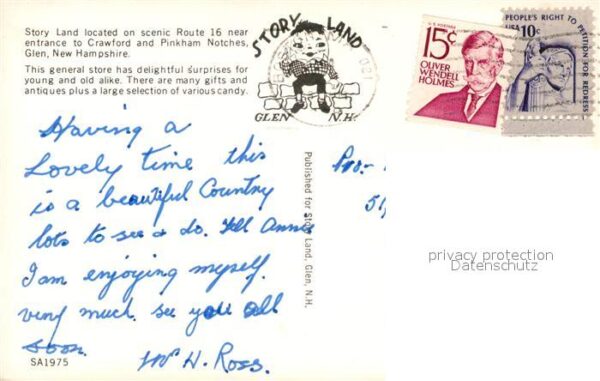 Story Land located on scenic Route 16 near
entrance to Crawford and Pinkham Notches,
Glen, New Hampshire.
This general store has delightful surprises for
young and old alike. There are many gifts and
antiques plus a large selection of various candy.
STORY LAND
GLEN N.H.
U.S. POSTAGE
15¢
OLIVER
WENDELL
HOLMES
PEOPLE'S RIGHT TO PETITION FOR REDRESS
USA 10c
Having a
Lovely time this
is a beautiful Country
lots to see & do. Tell Annie
I am enjoying myself.
very much. see you all
soon.
Mrs H. Ross.
Published for Story Land, Glen, N.H.
privacy protection
Datenschutz
SA1975